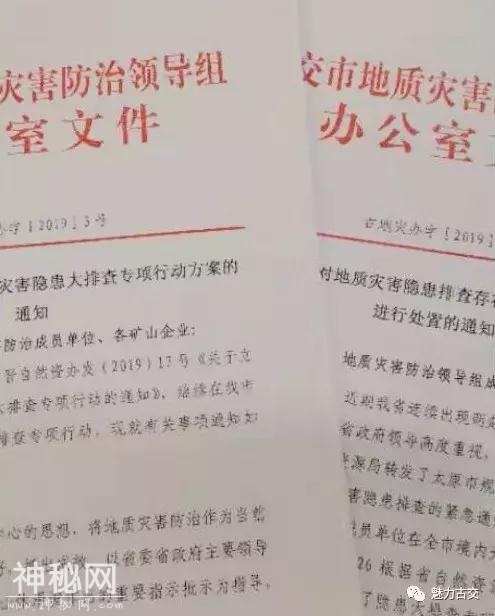 灾害防治领导组
室文件
字〔2019〕3号
灾害隐患大排查专项行动方案的
通知
防治成员单位、各矿山企业:
晋自然资办发〔2019〕17号《关于立
排查专项行动的通知》,
排查专项行动,现就有关事项通知如
心的思想,将地质灾害防治作为当前
以省委省政府主要领导
重要指示批示为指导,
交市地质灾害
办公室
古地灾办字〔2019〕
对地质灾害隐患排查存
进行处置的通知
地质灾害防治领导组成
近期我省连续出现
省政府领导高度重视,
源局转发了太原市规
害隐患排查的紧急通
成员单位在全市境内
26 根据省自然资
了隐患大排查专
神秘网
www.shenmiw.com
魅力古交